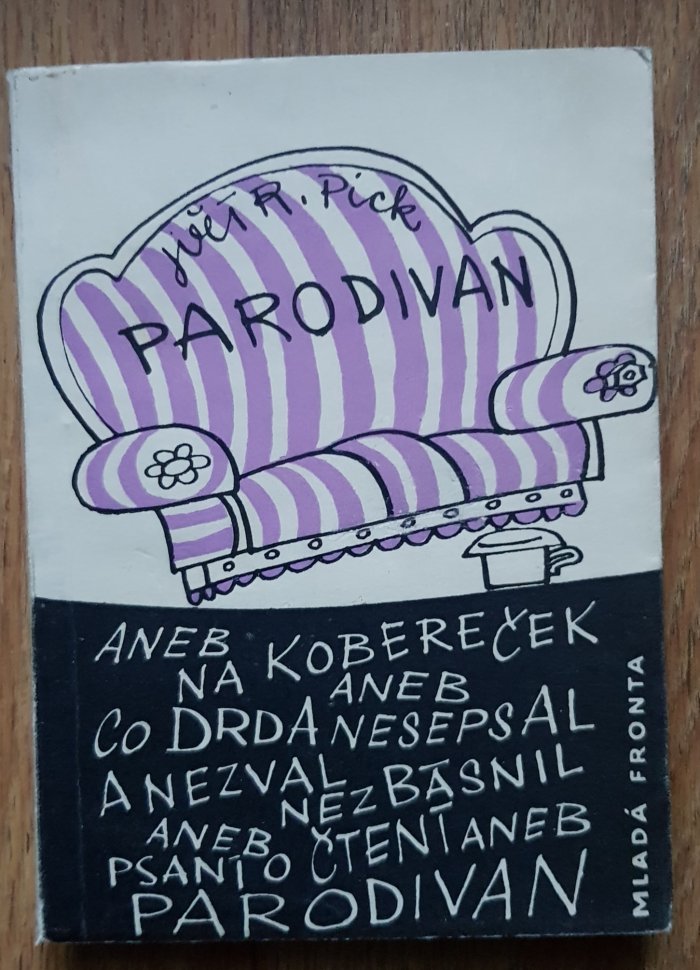 Jiří R. Pick
PARODIVAN
ANEB
NA KOBEREČEK
ANEB
CO DRDA NESEPSAL
A NEZVAL
NEZBÁSNIL
ANEB
PSANÍ O ČTENÍ ANEB
PARODIVAN
MLADÁ FRONTA